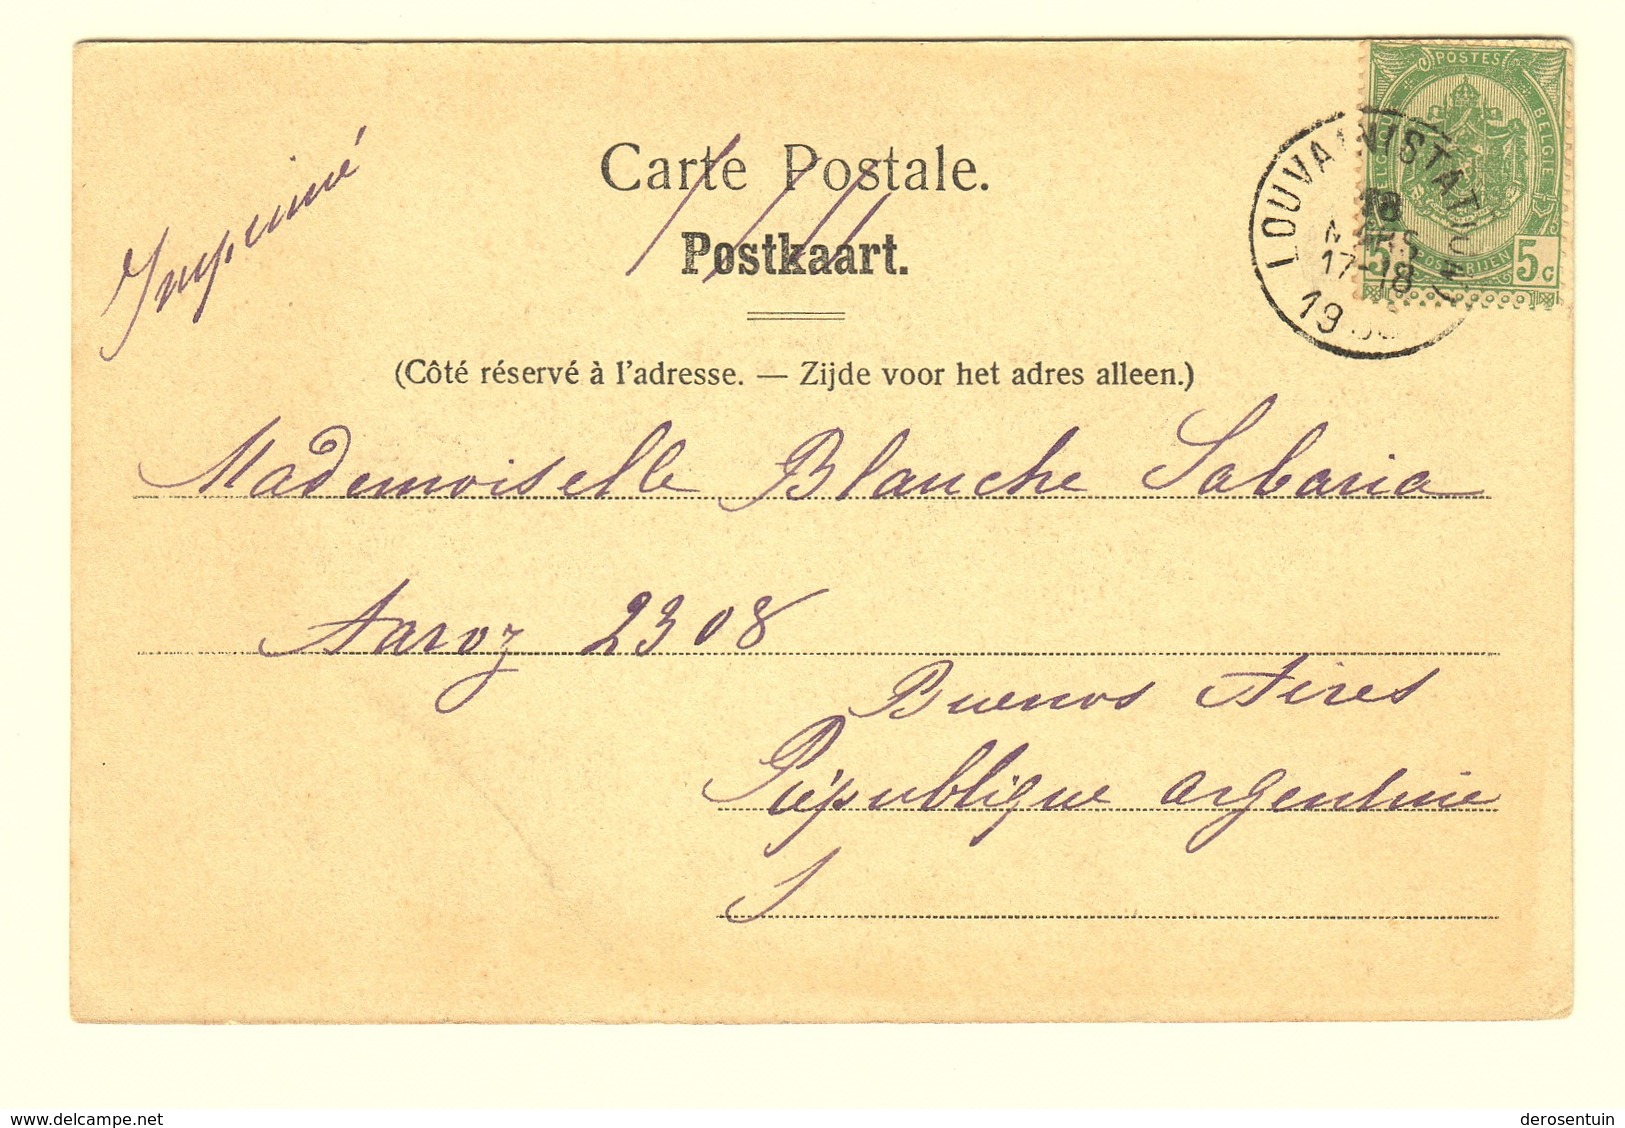 Imprimé
Carte Postale.
Postkaart.
(Côté réservé à l'adresse. — Zijde voor het adres alleen.)
POSTES
BELGIE
5 5c
LOUVAIN (STATION)
18
MARS
17-18
19
Mademoiselle Blanche Sabaria
Aaroz 2308
Buenos Aires
République argentine
delcampe.net
derosentuin